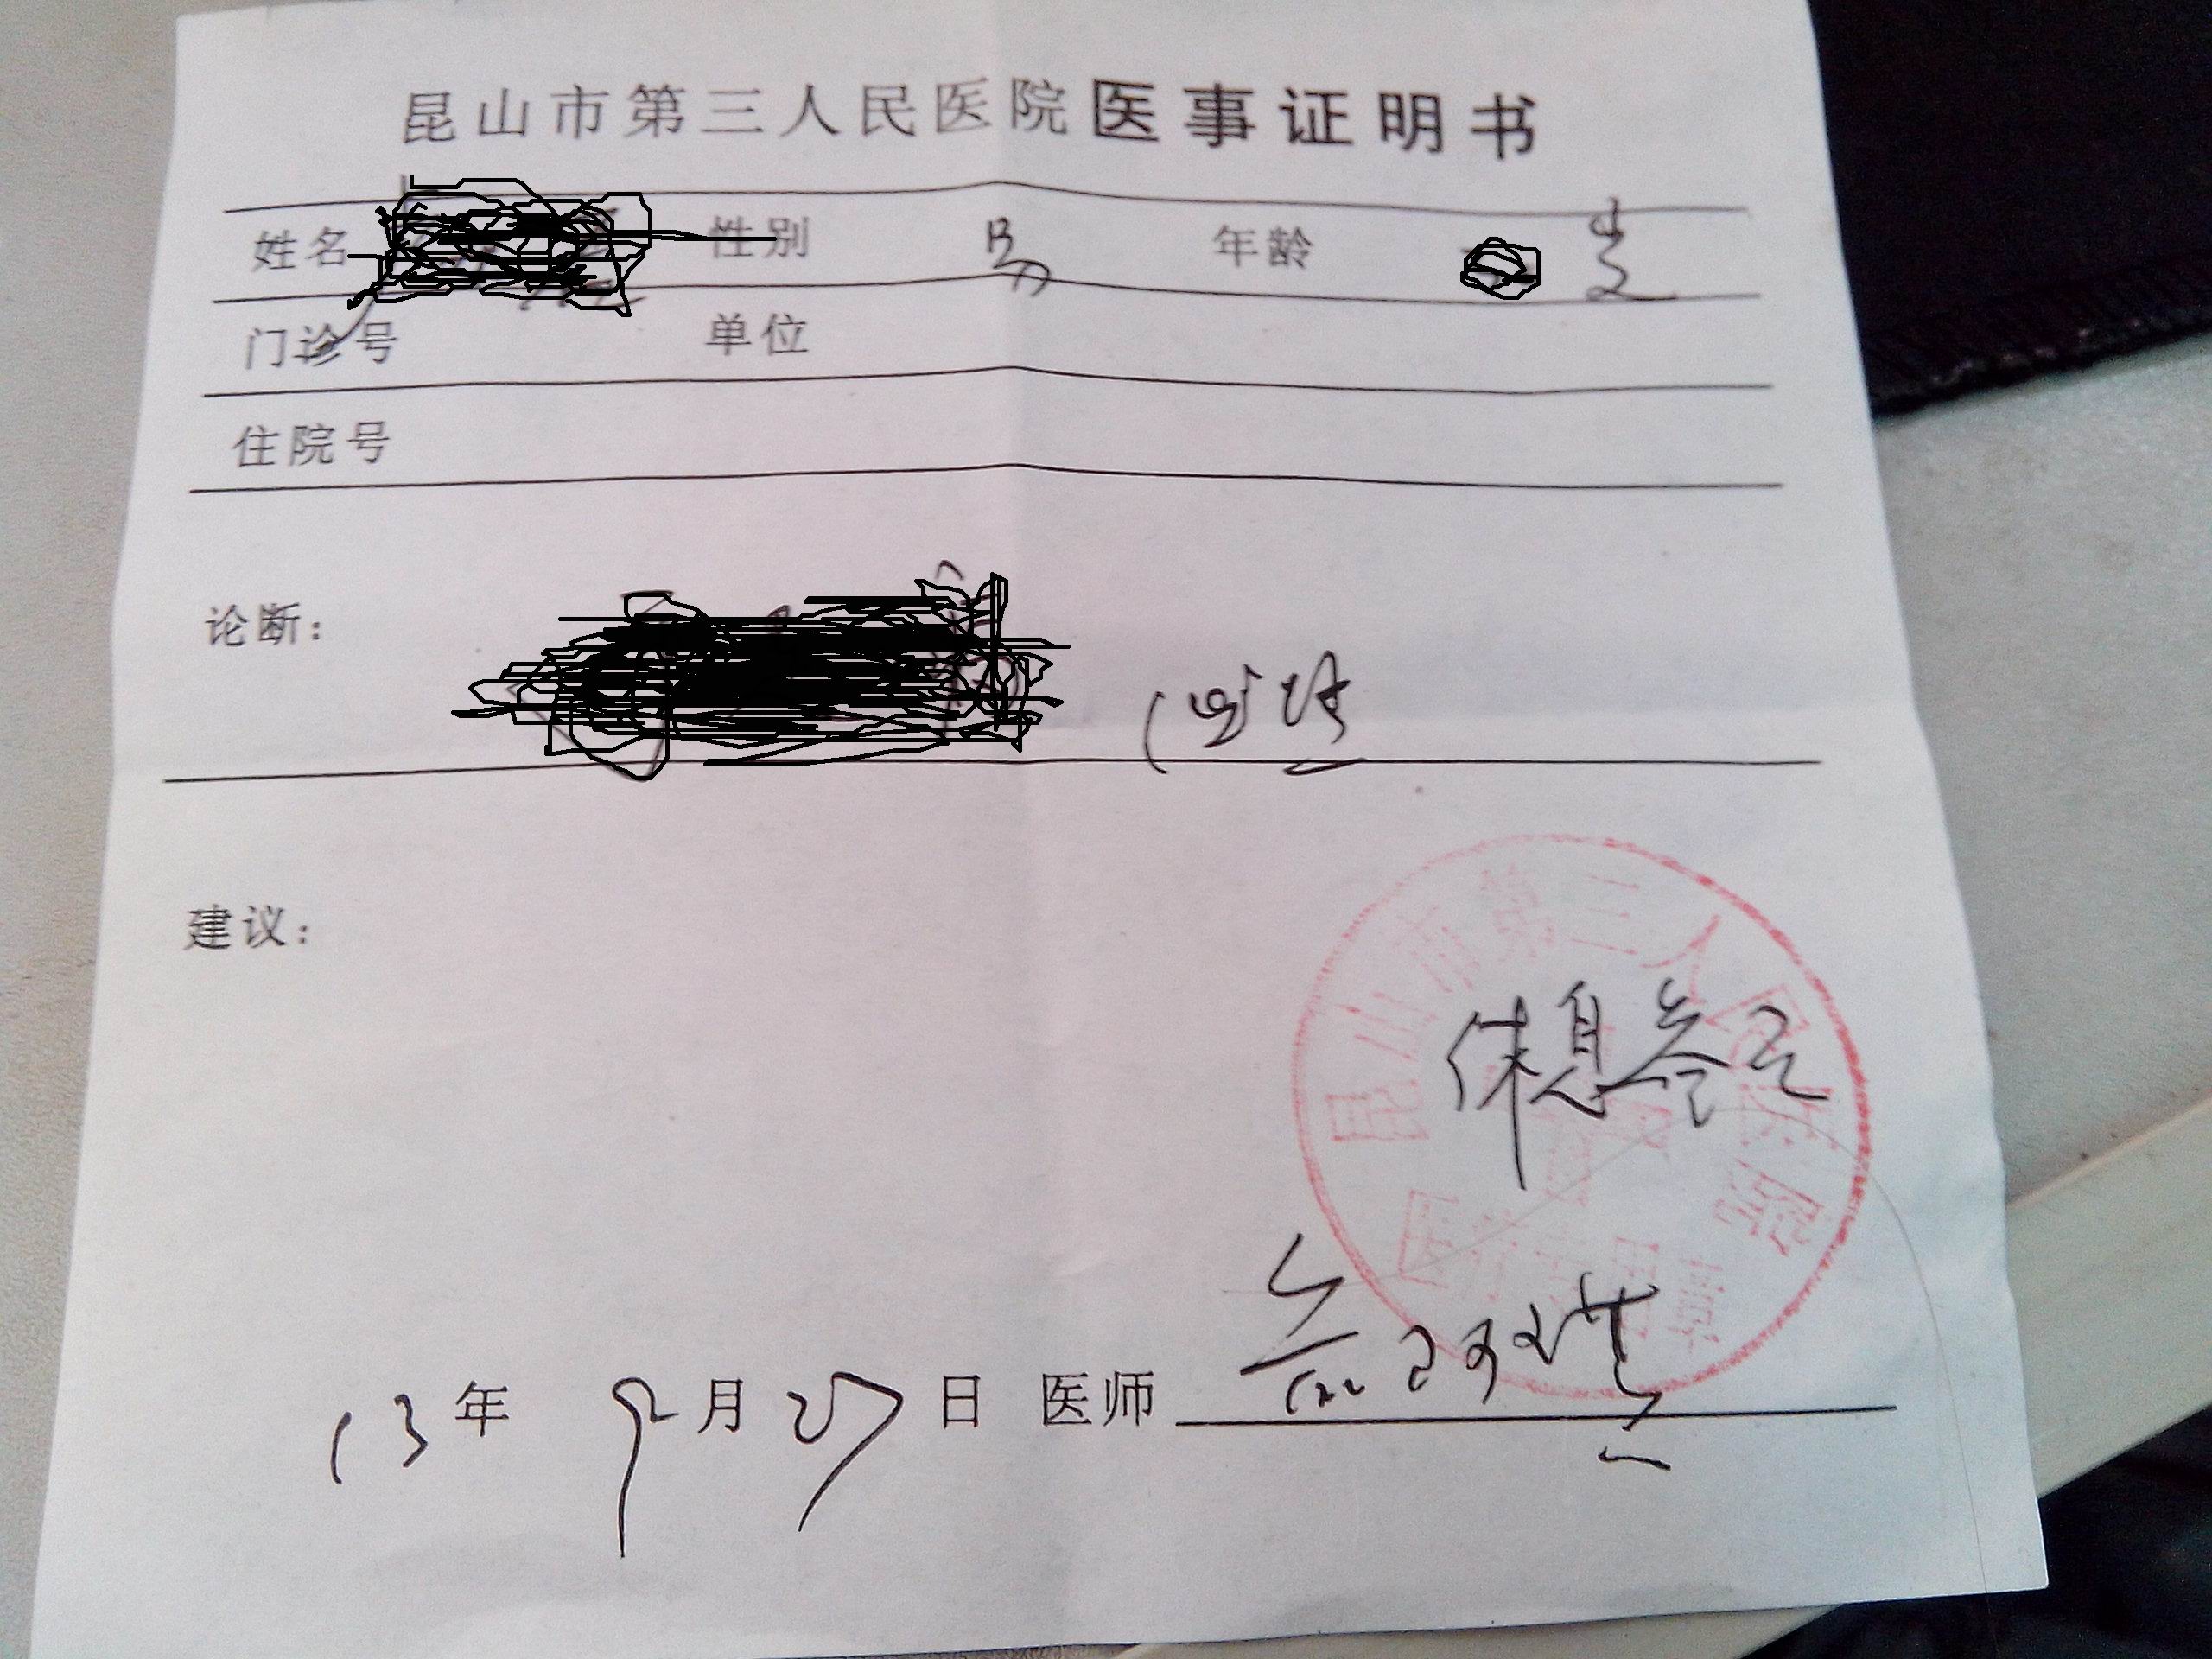 昆山市第三人民医院医事证明书
姓名 性别 男 年龄 岁
门诊号 单位
住院号
论断：
建议：
休息叁天
昆山市第三人民医院
13年 9月27日 医师